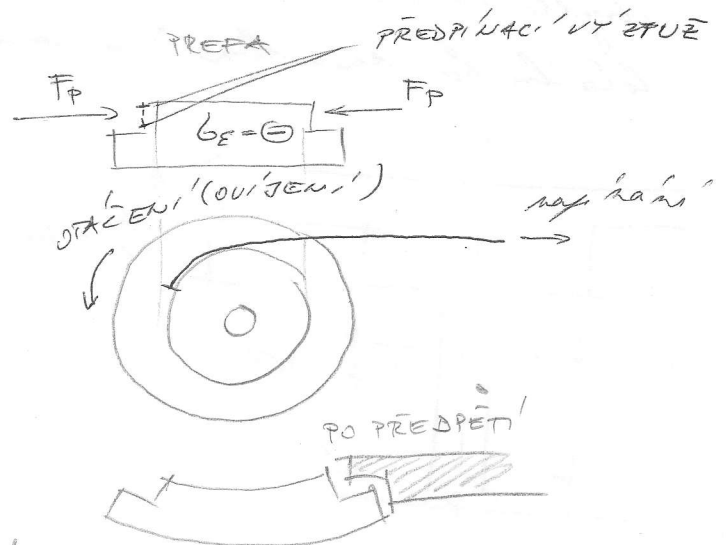 PREFA
PŘEDPÍNACÍ VÝZTUŽ
Fp
Fp
σε = ⊖
OTÁČENÍ (OVÍJENÍ)
napínání
PO PŘEDPĚTÍ